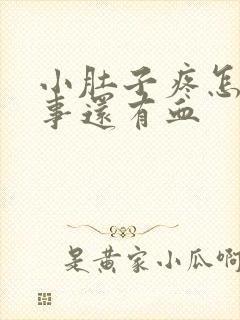 小肚子疼怎
事還有血
是黄家小瓜啊